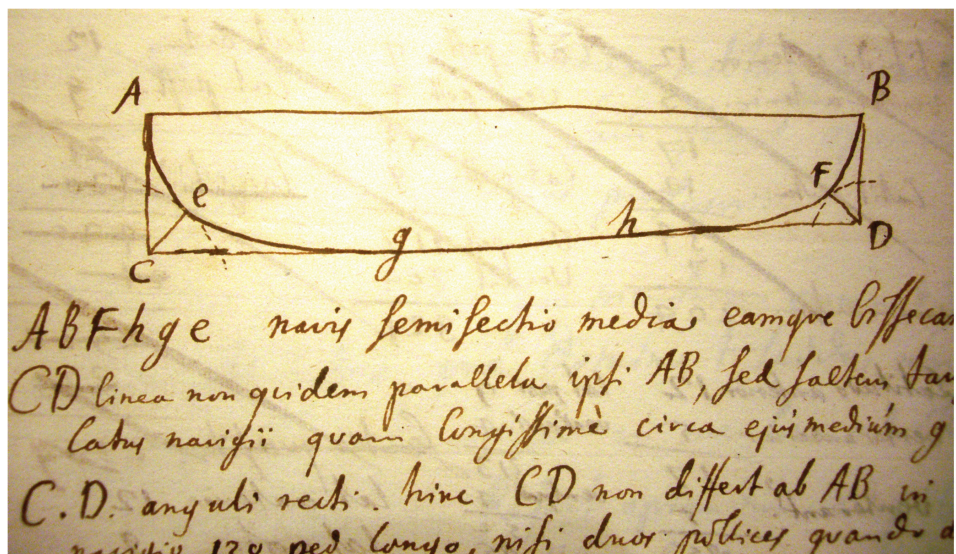 A B
e F
g h
C D
ABFhge navis semisectio media eamque bissecan
CD linea non quidem parallela ipsi AB, sed saltem tan
latus navigii quam longissimè circa ejus medium g
C.D. anguli recti. hinc CD non differt ab AB in
navigio 128 ped longo, nisi duos pollices quando a